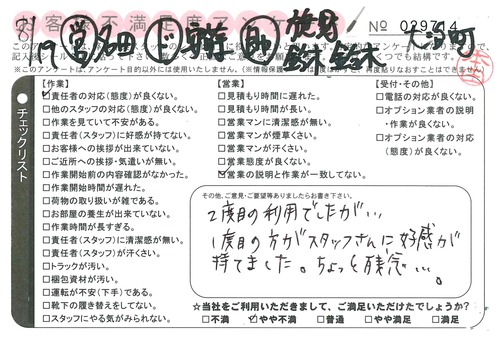 8/9
お客様不満足度アンケート
№ 029714
※このアンケートは、アンケート目的以外には使用いたしません。
チェックリスト
【作業】
☑責任者の対応(態度)が良くない。
□他のスタッフの対応(態度)が良くない。
□作業を見ていて不安がある。
□責任者(スタッフ)に好感が持てない。
□お客様への挨拶が出来ていない。
□ご近所への挨拶・気遣いが無い。
□作業開始前の内容確認がなかった。
□作業開始時間が遅れた。
□荷物の取り扱いが雑である。
□お部屋の養生が出来ていない。
□作業時間が長すぎる。
□責任者(スタッフ)に清潔感が無い。
□責任者(スタッフ)が汗くさい。
□トラックが汚い。
□梱包資材が汚い。
□運転が不安(下手)である。
□靴下の履き替えをしてない。
□スタッフにやる気がみられない。
【営業】
□見積もり時間に遅れた。
□見積もり時間が長い。
□営業マンに清潔感が無い。
□営業マンが煙草くさい。
□営業マンが汗くさい。
□営業態度が良くない。
☑営業の説明と作業が一致してない。
【受付・その他】
□電話の対応が良くない。
□オプション業者の説明
・作業が良くない。
□オプション業者の対応
(態度)が良くない。
その他、ご意見・ご要望等ありましたらお書き下さい。
2度目の利用でしたが…
1度目の方がスタッフさんに好感が
持てました。ちょっと残念…。
☆当社をご利用いただきまして、ご満足いただけたでしょうか?
□不満 ☑やや不満 □普通 □やや満足 □満足